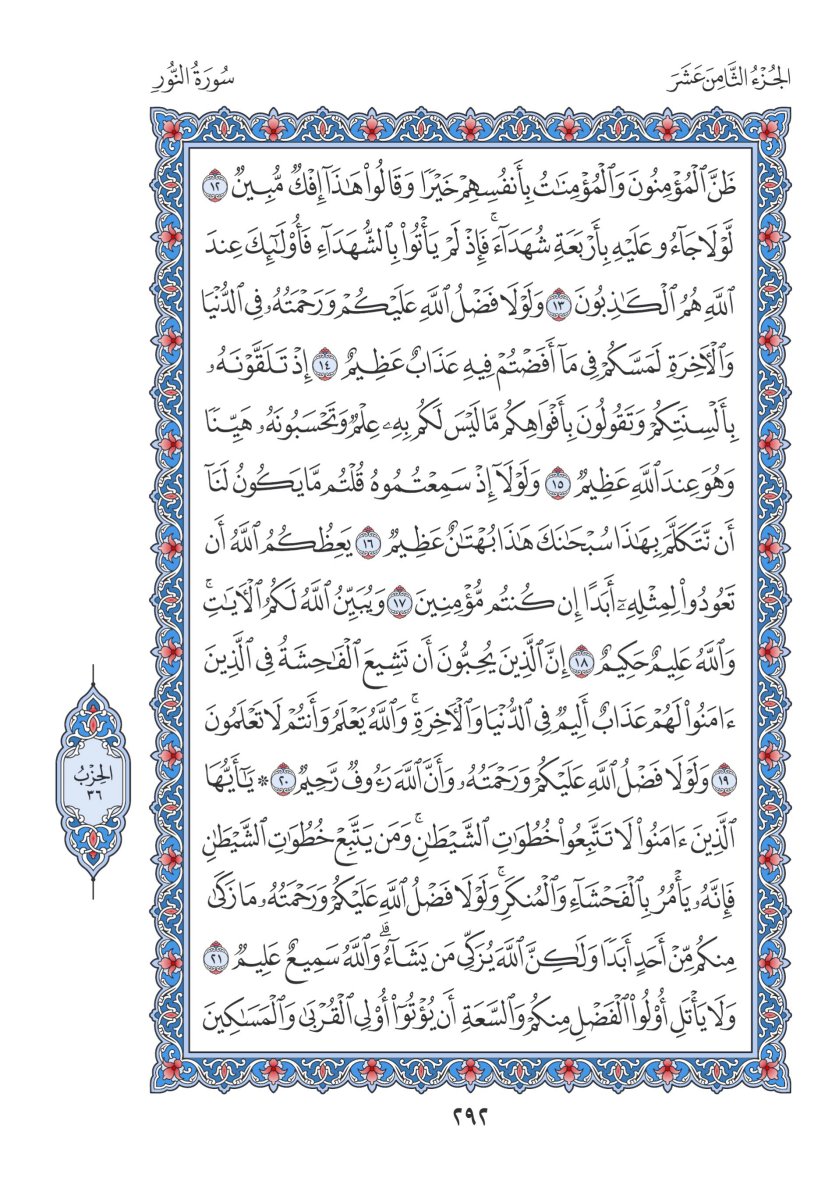 الجُزْءُ الثَّامِنَ عَشَرَ
سُورَةُ النُّورِ
ظَنَّ ٱلْمُؤْمِنُونَ وَٱلْمُؤْمِنَٰتُ بِأَنفُسِهِمْ خَيْرًا وَقَالُوا۟ هَٰذَآ إِفْكٌ مُّبِينٌ ١٢
لَّوْلَا جَآءُو عَلَيْهِ بِأَرْبَعَةِ شُهَدَآءَ ۚ فَإِذْ لَمْ يَأْتُوا۟ بِٱلشُّهَدَآءِ فَأُو۟لَٰٓئِكَ عِندَ
ٱللَّهِ هُمُ ٱلْكَٰذِبُونَ ١٣ وَلَوْلَا فَضْلُ ٱللَّهِ عَلَيْكُمْ وَرَحْمَتُهُۥ فِى ٱلدُّنْيَا
وَٱلْءَاخِرَةِ لَمَسَّكُمْ فِى مَآ أَفَضْتُمْ فِيهِ عَذَابٌ عَظِيمٌ ١٤ إِذْ تَلَقَّوْنَهُۥ
بِأَلْسِنَتِكُمْ وَتَقُولُونَ بِأَفْوَاهِكُم مَّا لَيْسَ لَكُم بِهِۦ عِلْمٌ وَتَحْسَبُونَهُۥ هَيِّنًا
وَهُوَ عِندَ ٱللَّهِ عَظِيمٌ ١٥ وَلَوْلَآ إِذْ سَمِعْتُمُوهُ قُلْتُم مَّا يَكُونُ لَنَآ
أَن نَّتَكَلَّمَ بِهَٰذَا سُبْحَٰنَكَ هَٰذَا بُهْتَٰنٌ عَظِيمٌ ١٦ يَعِظُكُمُ ٱللَّهُ أَن
تَعُودُوا۟ لِمِثْلِهِۦٓ أَبَدًا إِن كُنتُم مُّؤْمِنِينَ ١٧ وَيُبَيِّنُ ٱللَّهُ لَكُمُ ٱلْءَايَٰتِ ۚ
وَٱللَّهُ عَلِيمٌ حَكِيمٌ ١٨ إِنَّ ٱلَّذِينَ يُحِبُّونَ أَن تَشِيعَ ٱلْفَٰحِشَةُ فِى ٱلَّذِينَ
ءَامَنُوا۟ لَهُمْ عَذَابٌ أَلِيمٌ فِى ٱلدُّنْيَا وَٱلْءَاخِرَةِ ۚ وَٱللَّهُ يَعْلَمُ وَأَنتُمْ لَا تَعْلَمُونَ
١٩ وَلَوْلَا فَضْلُ ٱللَّهِ عَلَيْكُمْ وَرَحْمَتُهُۥ وَأَنَّ ٱللَّهَ رَءُوفٌ رَّحِيمٌ ٢٠ * يَٰٓأَيُّهَا
ٱلَّذِينَ ءَامَنُوا۟ لَا تَتَّبِعُوا۟ خُطُوَٰتِ ٱلشَّيْطَٰنِ ۚ وَمَن يَتَّبِعْ خُطُوَٰتِ ٱلشَّيْطَٰنِ
فَإِنَّهُۥ يَأْمُرُ بِٱلْفَحْشَآءِ وَٱلْمُنكَرِ ۚ وَلَوْلَا فَضْلُ ٱللَّهِ عَلَيْكُمْ وَرَحْمَتُهُۥ مَا زَكَىٰ
مِنكُم مِّنْ أَحَدٍ أَبَدًا وَلَٰكِنَّ ٱللَّهَ يُزَكِّى مَن يَشَآءُ ۗ وَٱللَّهُ سَمِيعٌ عَلِيمٌ ٢١
وَلَا يَأْتَلِ أُو۟لُوا۟ ٱلْفَضْلِ مِنكُمْ وَٱلسَّعَةِ أَن يُؤْتُوٓا۟ أُو۟لِى ٱلْقُرْبَىٰ وَٱلْمَسَٰكِينَ
الحِزْبُ
٣٦
٢٩٢